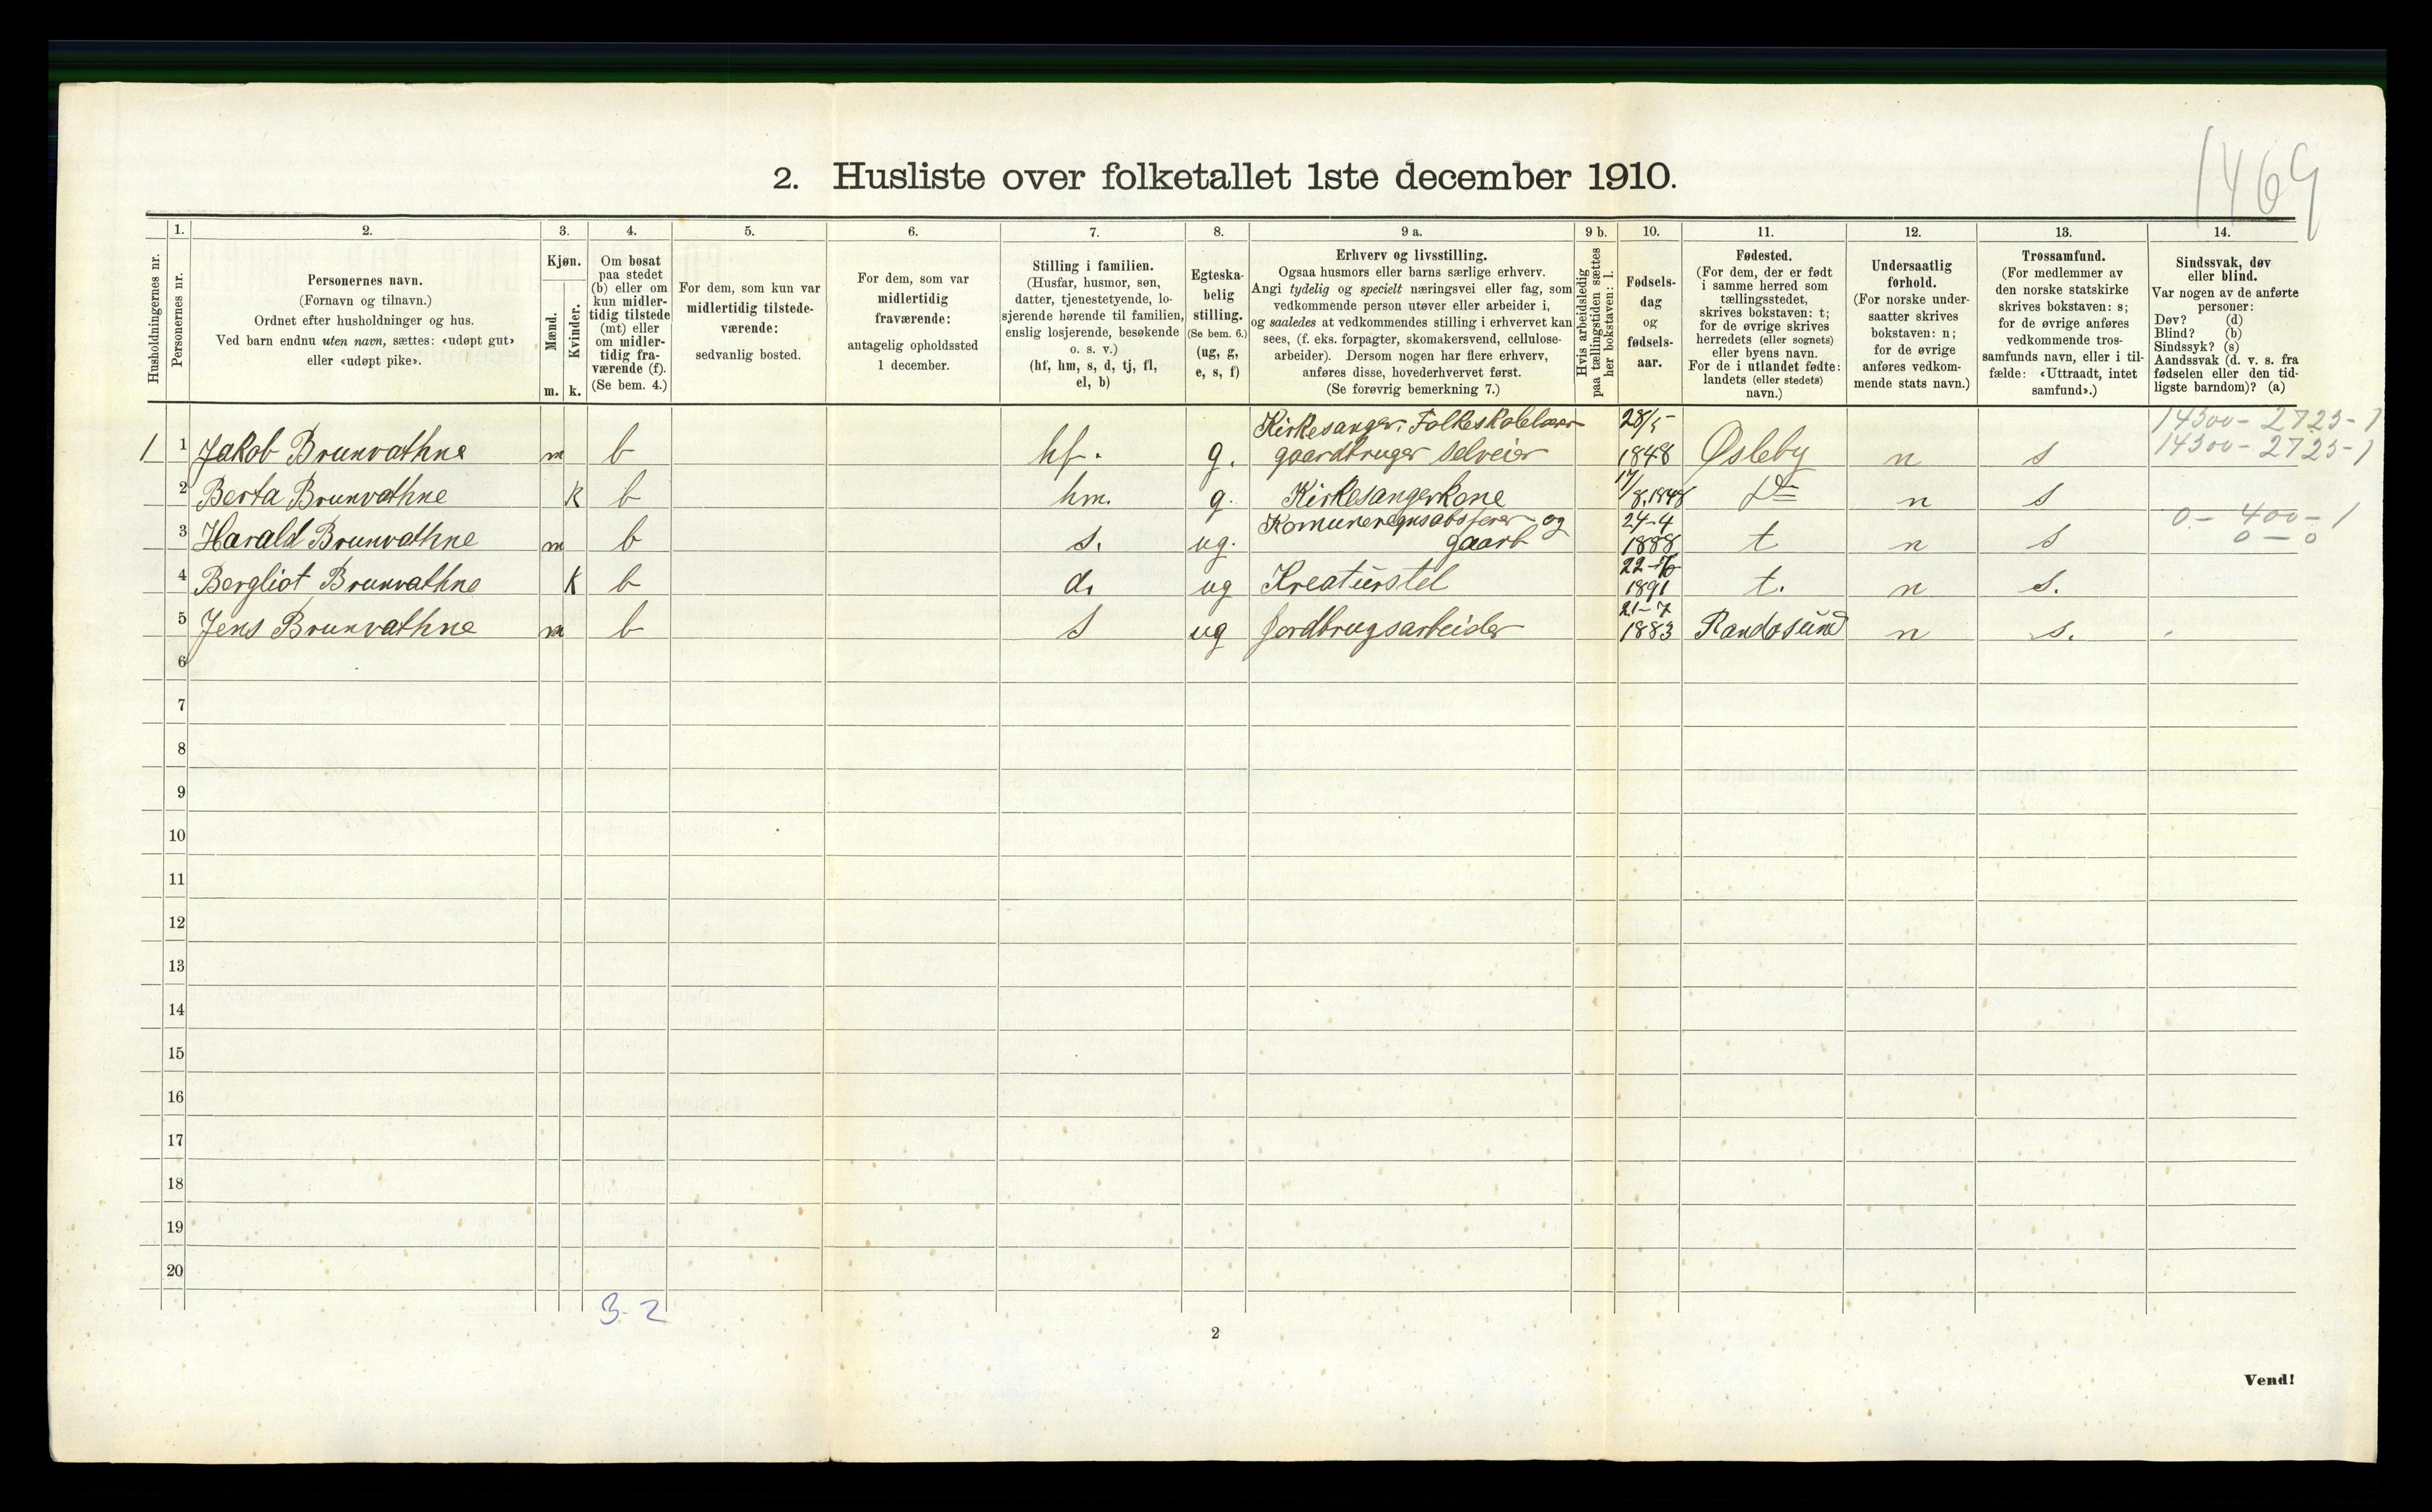 1469
2. Husliste over folketallet 1ste december 1910.
Husholdningernes nr.
1.
Personernes nr.
2.
Personernes navn.
(Fornavn og tilnavn.)
Ordnet efter husholdninger og hus.
Ved barn endnu uten navn, sættes: «udøpt gut»
eller «udøpt pike».
3.
Kjøn.
Mænd.
Kvinder.
m. k.
4.
Om bosat
paa stedet
(b) eller om
kun midler-
tidig tilstede
(mt) eller
om midler-
tidig fra-
værende (f).
(Se bem. 4.)
5.
For dem, som kun var
midlertidig tilstede-
værende:
sedvanlig bosted.
6.
For dem, som var
midlertidig
fraværende:
antagelig opholdssted
1 december.
7.
Stilling i familien.
(Husfar, husmor, søn,
datter, tjenestetyende, lo-
sjerende hørende til familien,
enslig losjerende, besøkende
o. s. v.)
(hf, hm, s, d, tj, fl,
el, b)
8.
Egteska-
belig
stilling.
(Se bem. 6.)
(ug, g,
e, s, f)
9 a.
Erhverv og livsstilling.
Ogsaa husmors eller barns særlige erhverv.
Angi tydelig og specielt næringsvei eller fag, som
vedkommende person utøver eller arbeider i,
og saaledes at vedkommendes stilling i erhvervet kan
sees, (f. eks. forpagter, skomakersvend, cellulose-
arbeider). Dersom nogen har flere erhverv,
anføres disse, hovederhvervet først.
(Se forøvrig bemerkning 7.)
9 b.
Hvis arbeidsledig
paa tællingstiden sættes
her bokstaven: l.
10.
Fødsels-
dag
og
fødsels-
aar.
11.
Fødested.
(For dem, der er født
i samme herred som
tællingsstedet,
skrives bokstaven: t;
for de øvrige skrives
herredets (eller sognets)
eller byens navn.
For de i utlandet fødte:
landets (eller stedets)
navn.)
12.
Undersaatlig
forhold.
(For norske under-
saatter skrives
bokstaven: n;
for de øvrige
anføres vedkom-
mende stats navn.)
13.
Trossamfund.
(For medlemmer av
den norske statskirke
skrives bokstaven: s;
for de øvrige anføres
vedkommende tros-
samfunds navn, eller i til-
fælde: «Uttraadt, intet
samfund».)
14.
Sindssvak, døv
eller blind.
Var nogen av de anførte
personer:
Døv? (d)
Blind? (b)
Sindssyk? (s)
Aandssvak (d. v. s. fra
fødselen eller den tid-
ligste barndom)? (a)
Kirkesanger, Folkeskolelærer 28/5 14300-2723-1
1 1 Jakob Brunvathne m b hf. g. gaardbruger selveier 1848 Øsleby n s 14300-2723-1
2 Berta Brunvathne k b hm. g. Kirkesangerkone 17/8.1848 Do n s
Komuneregnsabsfører og 24-4 0-400-1
3 Harald Brunvathne m b s. ug. gaarb 1888 t n s 0-0
4 Bergliot Brunvathne k b d. ug Kreaturstel 1891 t. n s.
21-7
5 Jens Brunvathne m b s ug Jordbrugsarbeider 1883 Randosund n s.
6
7
8
9
10
11
12
13
14
15
16
17
18
19
20
3-2
2
Vend!